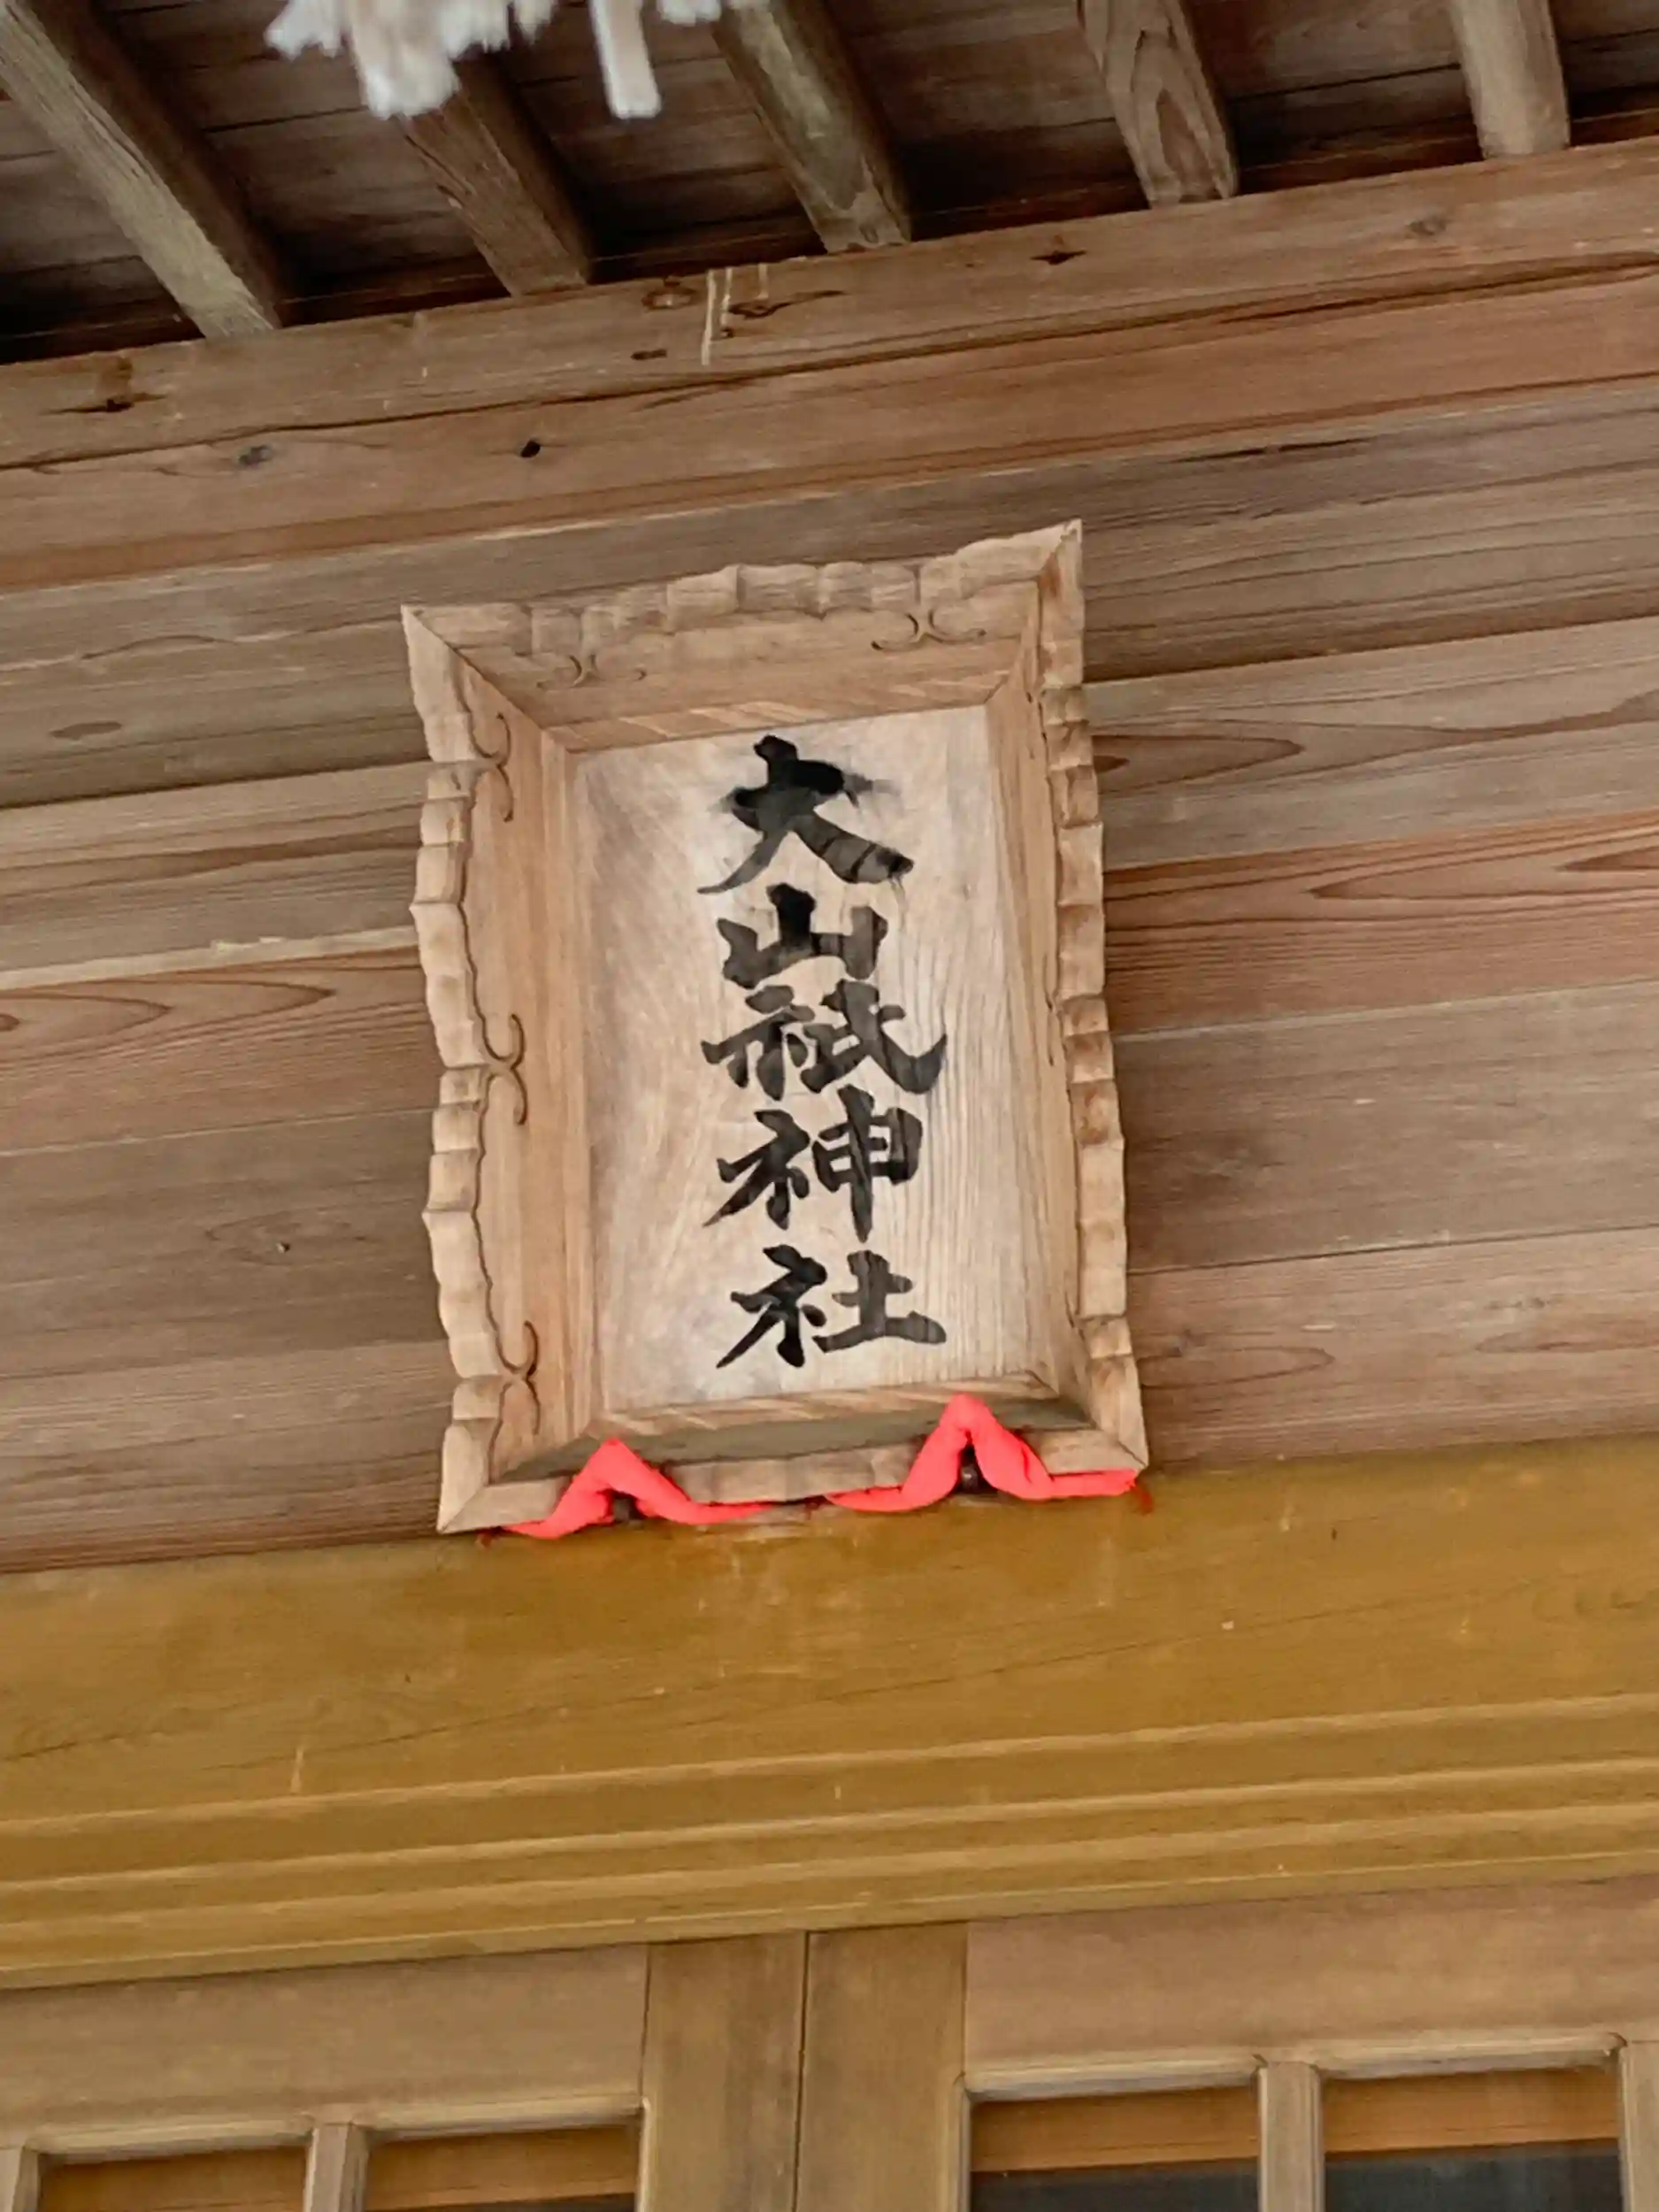 大山祇神社